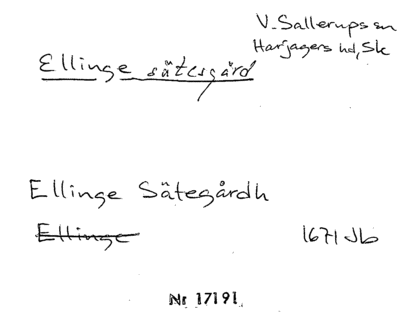 V. Sallerups sn
Harjagers hd, Sk
Ellinge sätesgård
Ellinge Sätegårdh
Ellinge
1671 Jb
Nr 17191.